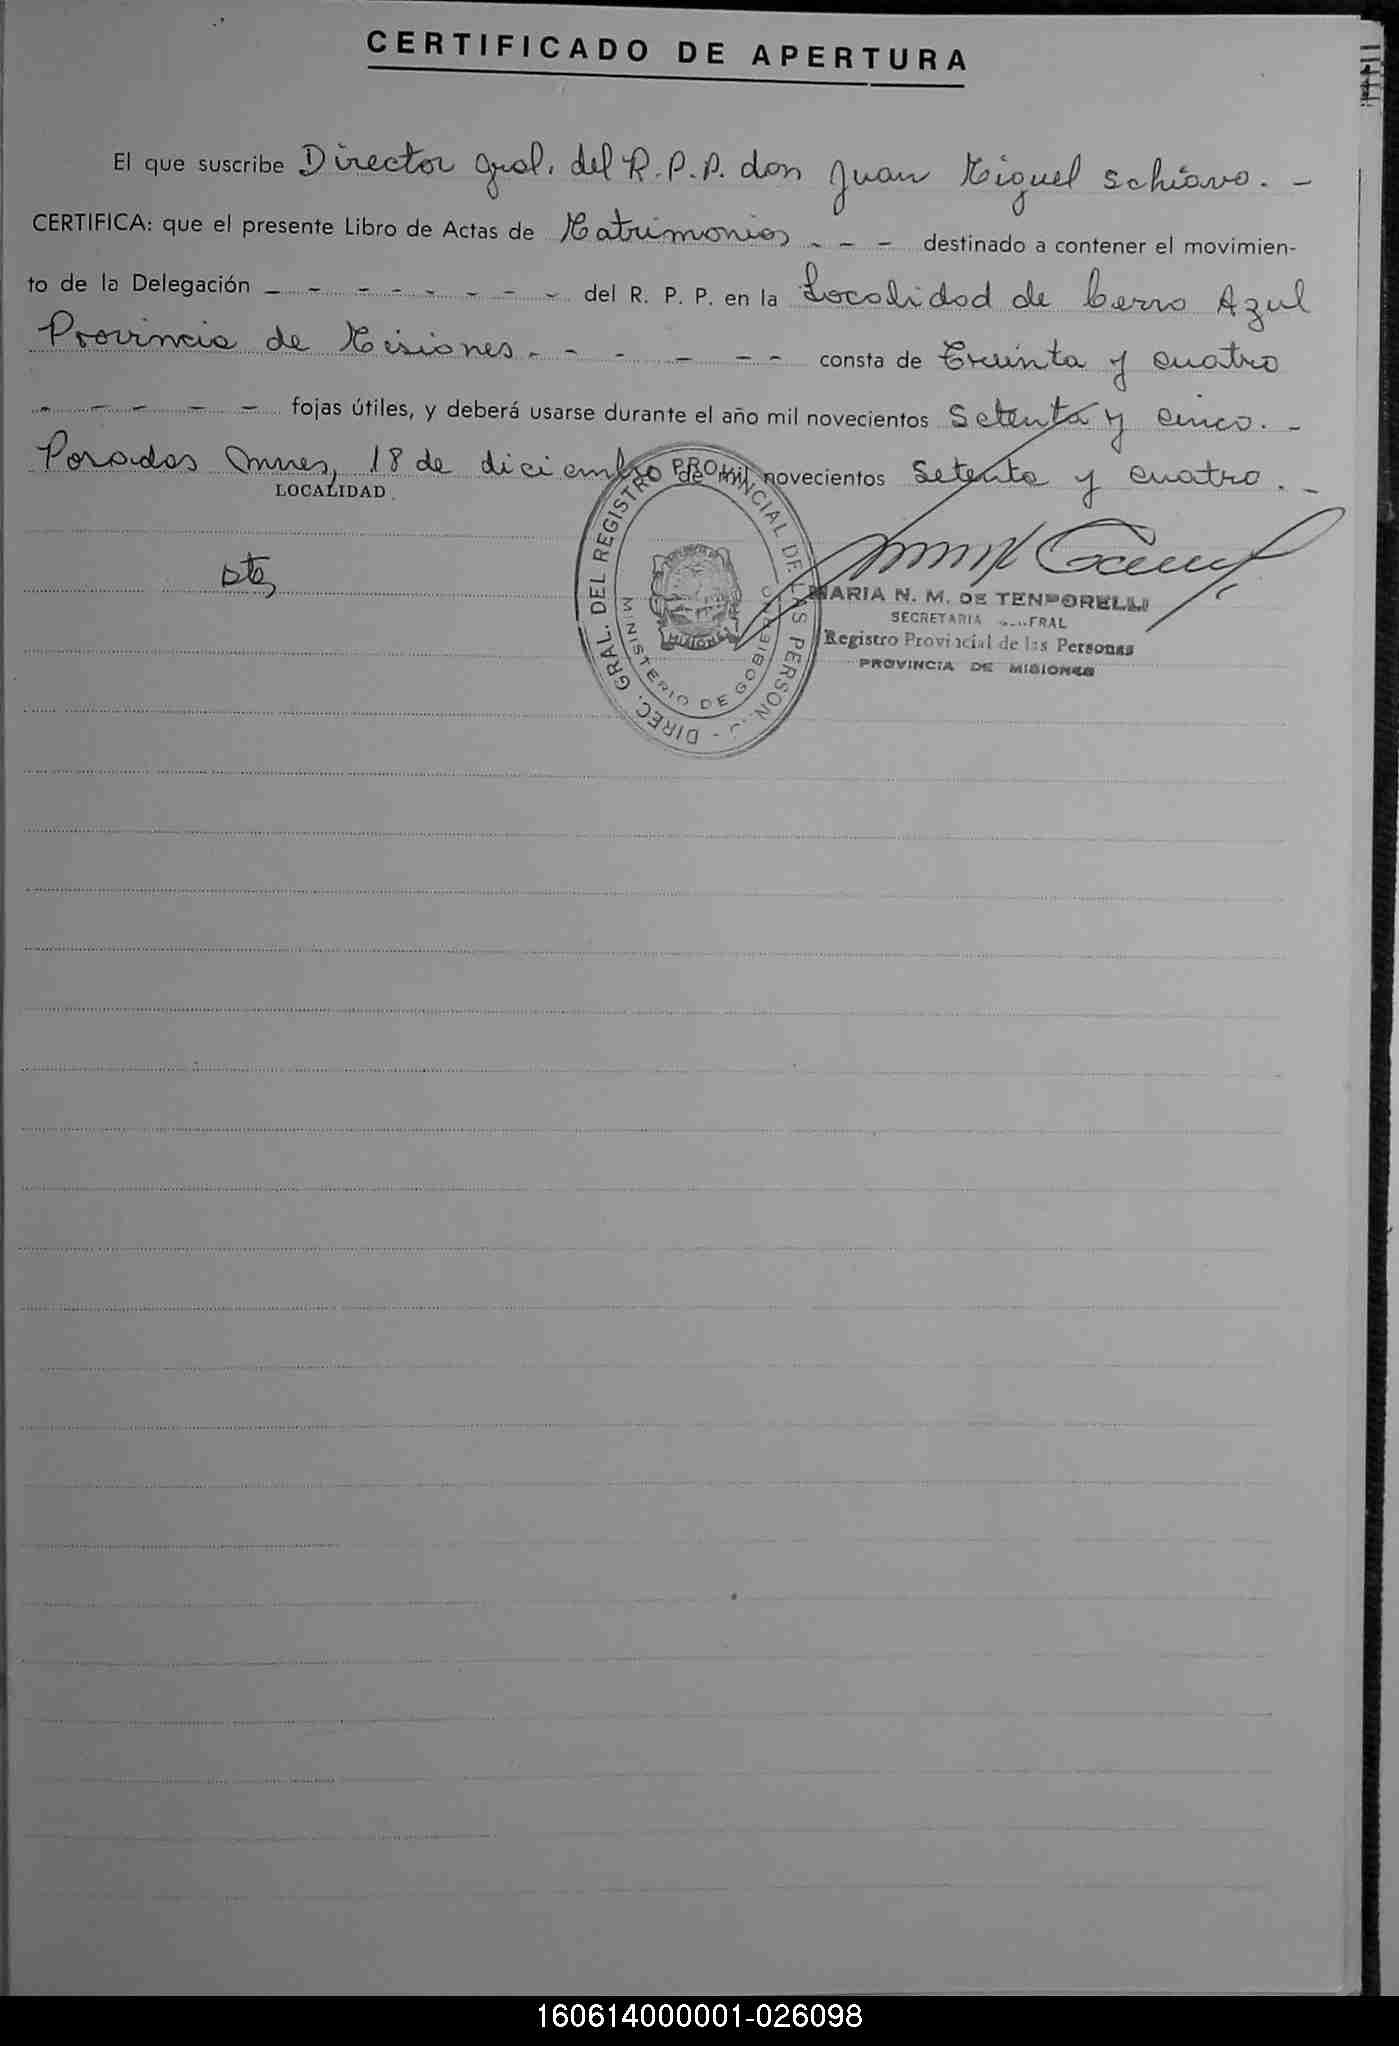 CERTIFICADO DE APERTURA
El que suscribe Director Gral. del R.P.P. don Juan Miguel Schiavo. -
CERTIFICA: que el presente Libro de Actas de Matrimonios - - - destinado a contener el movimien-
to de la Delegación - - - - - - - - del R. P. P. en la Localidad de Cerro Azul
Provincia de Misiones. - - - - - - consta de Treinta y cuatro
- - - - - fojas útiles, y deberá usarse durante el año mil novecientos Setenta y cinco. -
Posadas Mnes, 18 de diciembre de mil novecientos Setenta y cuatro. -
LOCALIDAD
DIREC. GRAL. DEL REGISTRO PROVINCIAL DE LAS PERSON
MINISTERIO DE GOBIERNO
MISIONES
MARIA N. M. DE TENPORELLI
SECRETARIA
Registro Provincial de las Personas
PROVINCIA DE MISIONES
160614000001-026098